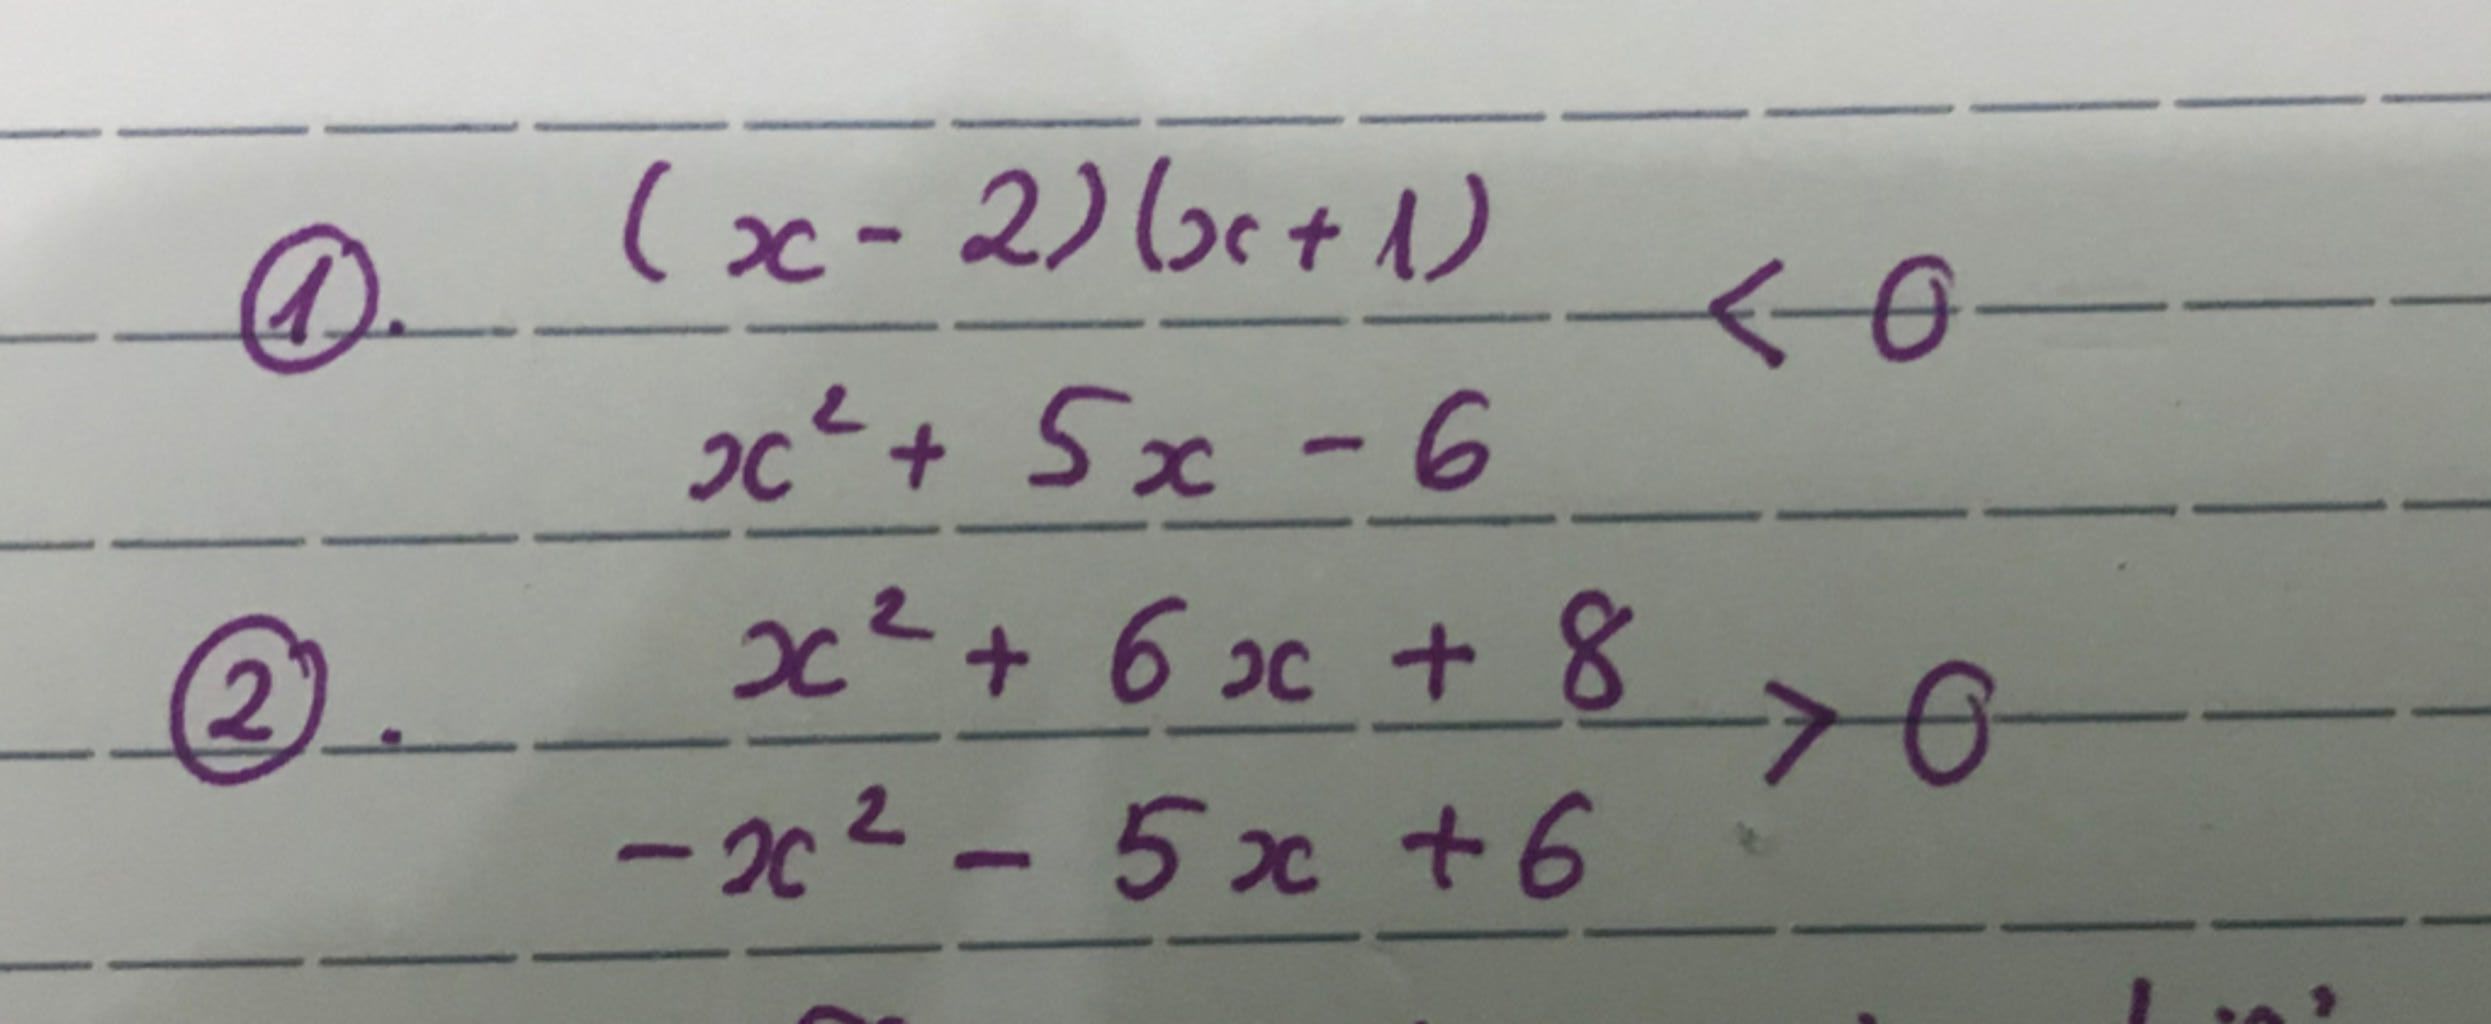 ①. (x - 2)(x + 1)
< 0
x² + 5x - 6
②. x² + 6x + 8
> 0
-x² - 5x + 6